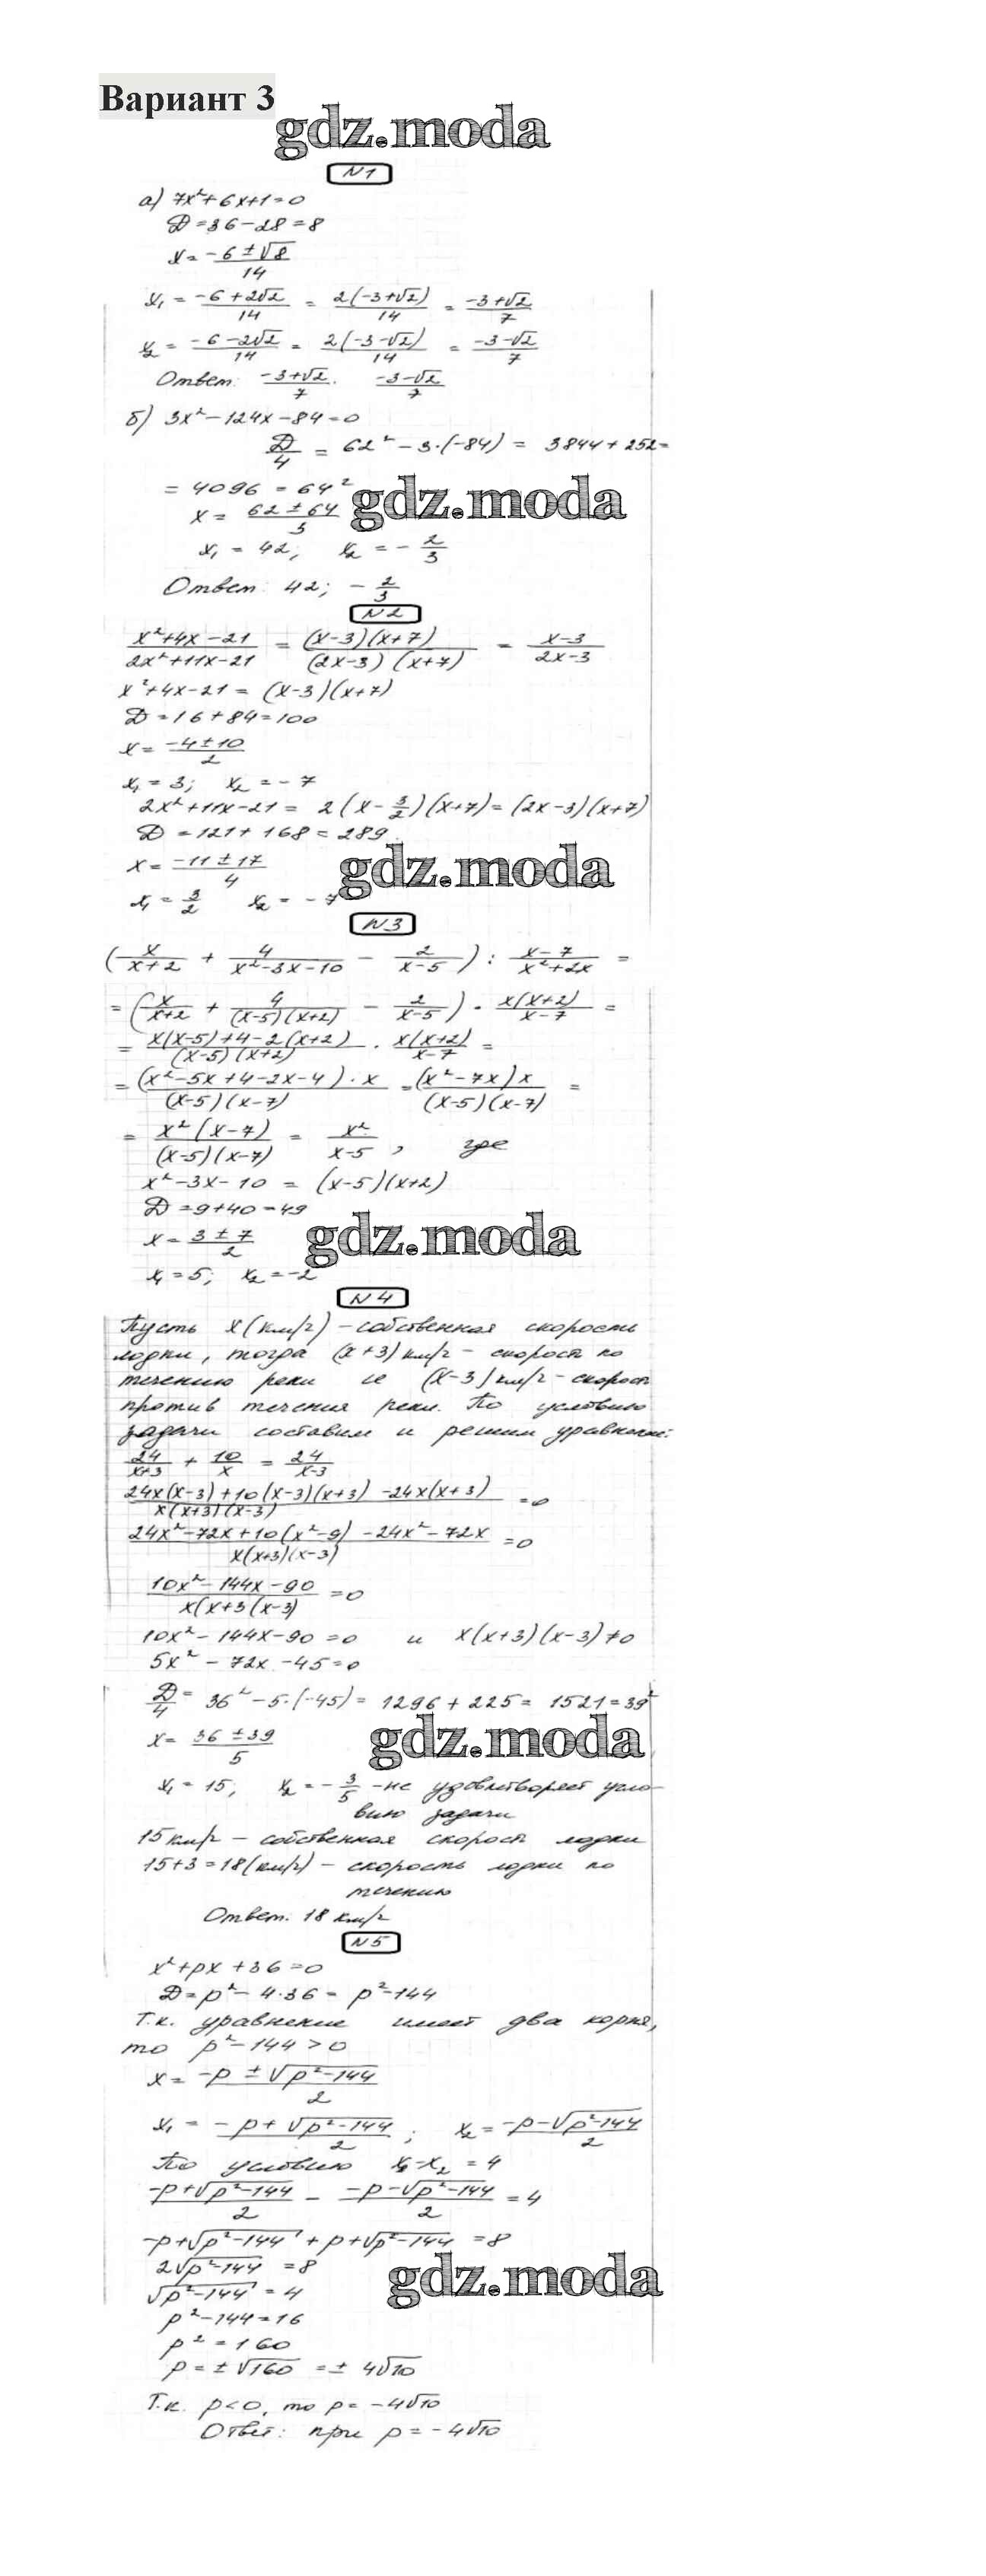 Вариант 3
gdz.moda
N1
а) 7x²+6x+1=0
D=36-28=8
x = (-6±√8)/14
x₁ = (-6+2√2)/14 = 2(-3+√2)/14 = (-3+√2)/7
x₂ = (-6-2√2)/14 = 2(-3-√2)/14 = (-3-√2)/7
Ответ: (-3+√2)/7. (-3-√2)/7
б) 3x²-124x-84=0
D/4 = 62²-3·(-84) = 3844+252=
= 4096 = 64²
gdz.moda
x = (62±64)/3
x₁ = 42; x₂ = -2/3
Ответ: 42; -2/3
N2
(x²+4x-21)/(2x²+11x-21) = (x-3)(x+7)/(2x-3)(x+7) = (x-3)/(2x-3)
x²+4x-21 = (x-3)(x+7)
D=16+84=100
x = (-4±10)/2
x₁ = 3; x₂ = -7
2x²+11x-21 = 2(x-3/2)(x+7) = (2x-3)(x+7)
D = 121+168 = 289
x = (-11±17)/4
gdz.moda
x₁ = 3/2 x₂ = -7
N3
(x/(x+2) + 4/(x²-3x-10) - 2/(x-5)) : (x-7)/(x²+2x) =
= (x/(x+2) + 4/(x-5)(x+2) - 2/(x-5)) · x(x+2)/(x-7) =
= (x(x-5)+4-2(x+2))/(x-5)(x+2) · x(x+2)/(x-7) =
= (x²-5x+4-2x-4)·x/(x-5)(x-7) = (x²-7x)x/(x-5)(x-7) =
= x²(x-7)/(x-5)(x-7) = x²/(x-5), где
x²-3x-10 = (x-5)(x+2)
D=9+40=49
x = (3±7)/2
gdz.moda
x₁ = 5; x₂ = -2
N4
Пусть x (км/г) - собственная скорость
лодки, тогда (x+3) км/г - скорость по
течению реки и (x-3) км/г - скорость
против течения реки. По условию
задачи составим и решим уравнение:
24/(x+3) + 10/x = 24/(x-3)
(24x(x-3)+10(x-3)(x+3)-24x(x+3))/x(x+3)(x-3) =0
(24x²-72x+10(x²-9)-24x²-72x)/x(x+3)(x-3) =0
(10x²-144x-90)/x(x+3(x-3) =0
10x²-144x-90=0 и x(x+3)(x-3)≠0
5x²-72x-45=0
D/4 = 36²-5·(-45) = 1296+225 = 1521=39²
x = (36±39)/5
gdz.moda
x₁ = 15; x₂ = -3/5 - не удовлетворяет усло-
вию задачи
15 км/г - собственная скорость лодки
15+3=18 (км/г) - скорость лодки по
течению
Ответ: 18 км/г
N5
x²+px+36=0
D=p²-4·36= p²-144
Т.к. уравнение имеет два корня,
то p²-144>0
x = (-p±√(p²-144))/2
x₁ = (-p+√(p²-144))/2; x₂ = (-p-√(p²-144))/2
По условию x₁-x₂ = 4
(-p+√(p²-144))/2 - (-p-√(p²-144))/2 = 4
-p+√(p²-144) + p+√(p²-144) =8
2√(p²-144) =8
gdz.moda
√(p²-144) = 4
p²-144=16
p²=160
p=±√160 =± 4√10
Т.к. p<0, то p= -4√10
Ответ: при p=-4√10